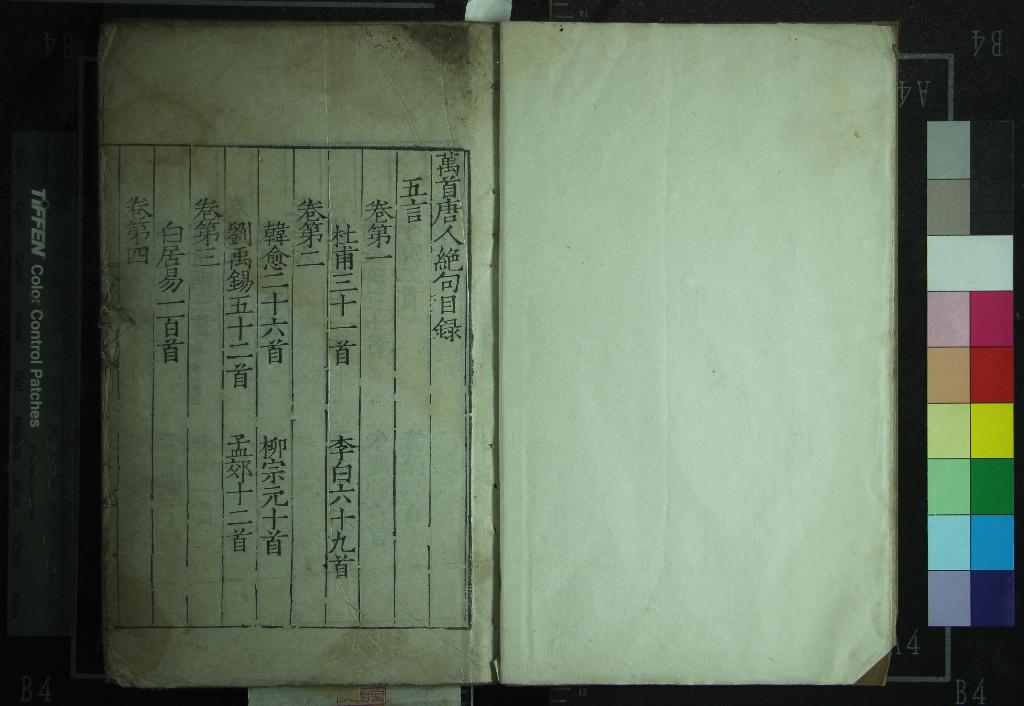 萬首唐人絶句目録
五言
卷第一
杜甫三十一首 李白六十九首
卷第二
韓愈二十六首 柳宗元十首
劉禹錫五十二首 孟郊十二首
卷第三
白居易一百首
卷第四
TIFFEN Color Control Patches
B4
B4
A4
A4
B4
B4